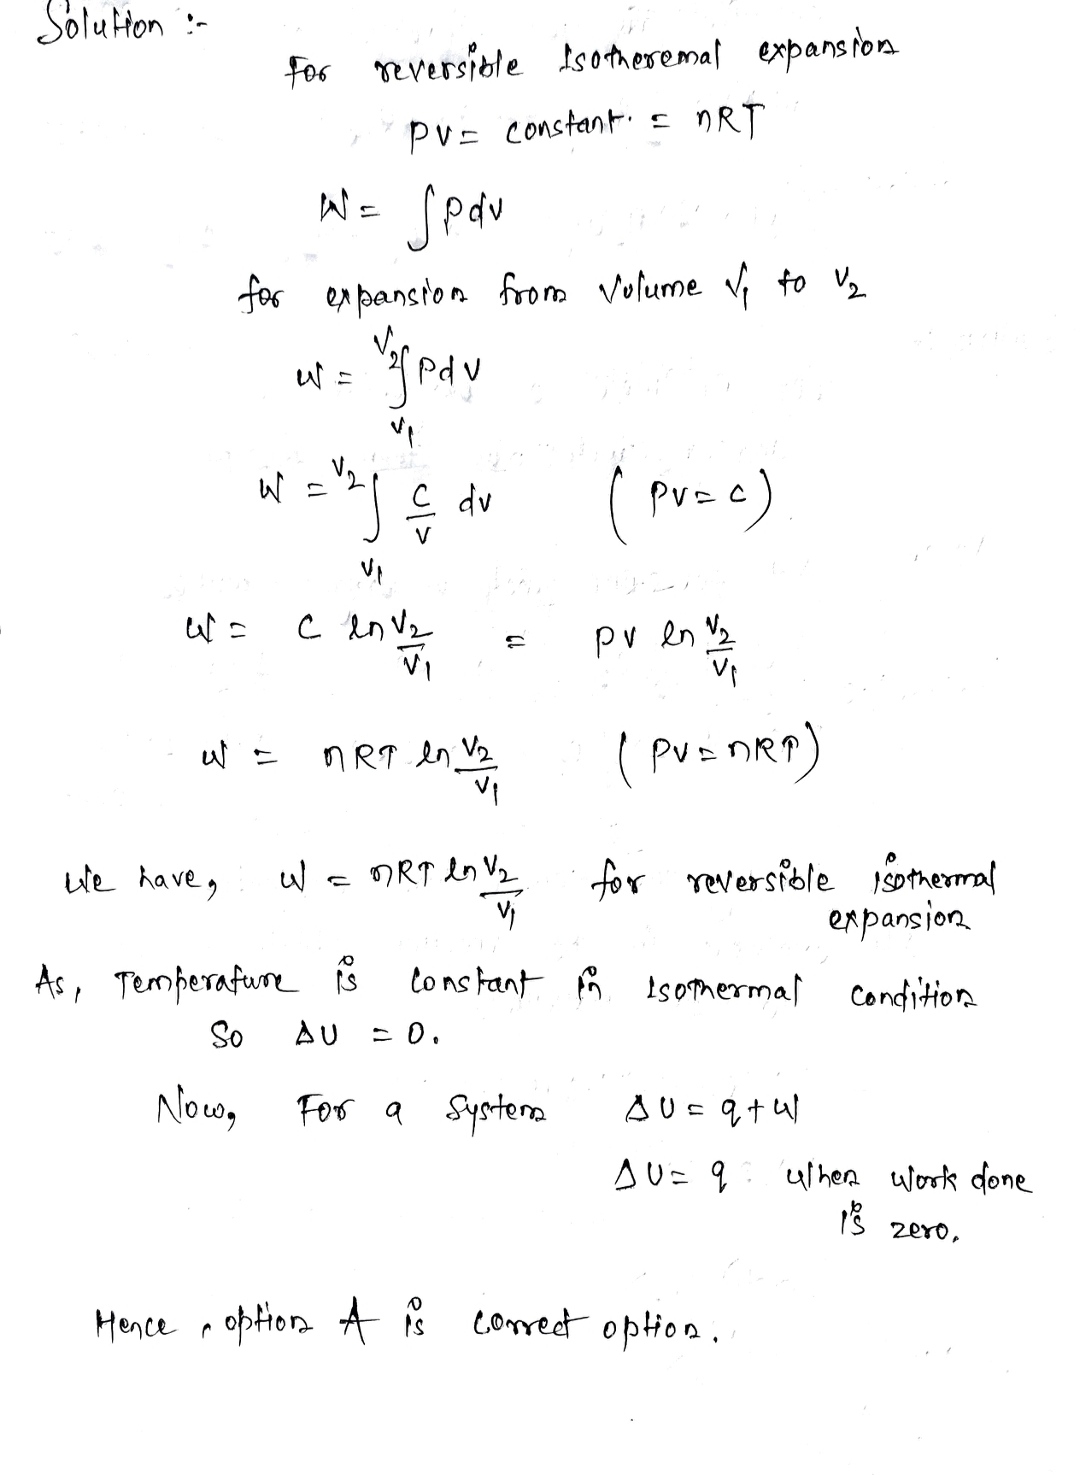 Solution :-
For reversible Isotheremal expansion
PV = constant. = nRT
W = ∫ P dV
for expansion from Volume V₁ to V₂
W = V₂∫V₁ P dV
W = V₂∫V₁ C/V dV ( PV = C )
W = C ln V₂/V₁ = PV ln V₂/V₁
W = nRT ln V₂/V₁ ( PV = nRT )
We have, W = nRT ln V₂/V₁ for reversible isothermal
expansion
As, Temperature is Constant in Isothermal Condition
So ΔU = 0.
Now, For a System ΔU = q + W
ΔU = q when Work done
is zero.
Hence, option A is correct option.